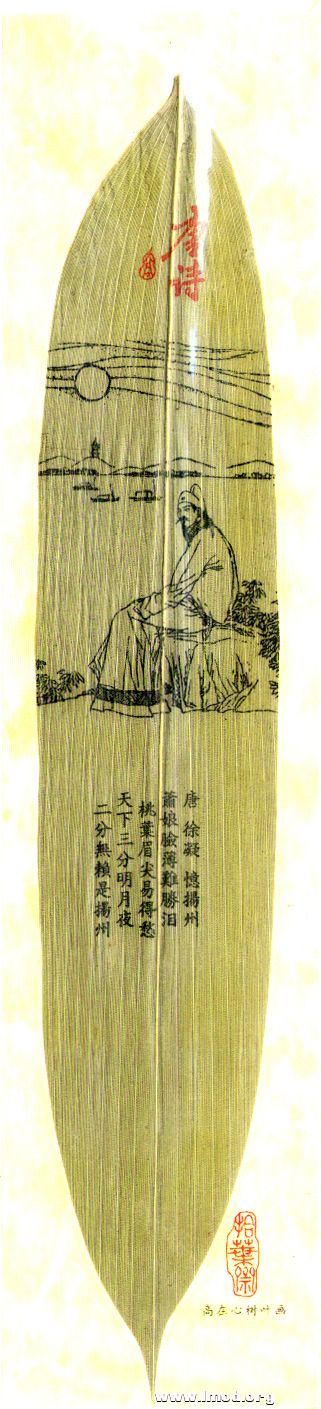 唐诗
唐 徐凝 憶揚州
蕭娘臉薄難勝泪
桃葉眉尖易得愁
天下三分明月夜
二分無賴是揚州
拾葉
高在心树叶画
www.lmod.org